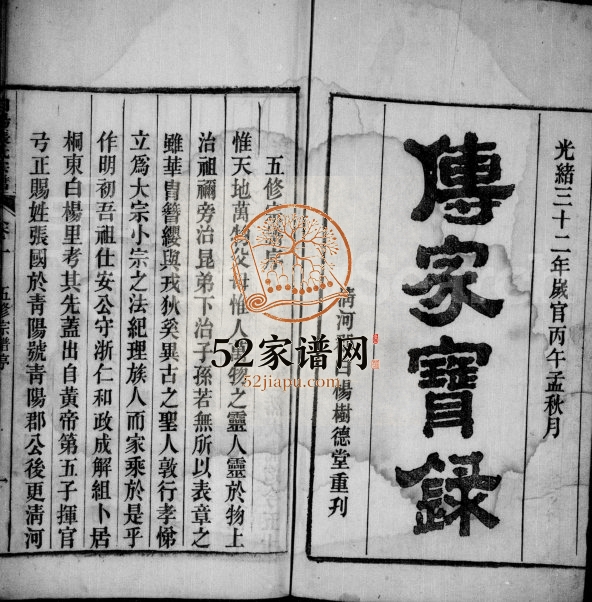 光緒三十二年歲官丙午孟秋月
傳家寶錄
清河
白楊樹德堂重刊
五修宗譜序
惟天地萬物父母惟人萬物之靈人靈於物上
治祖禰旁治昆弟下治子孫若無所以表章之
雖華胄簪纓與戎狄奚異古之聖人敦行孝悌
立為大宗小宗之法紀理族人而家乘於是乎
作明初吾祖仕安公守浙仁和政成解組卜居
桐東白楊里考其先蓋出自黃帝第五子揮官
弓正賜姓張國於青陽號青陽郡公後更清河
五修宗譜序
52家谱网
52jiapu.com